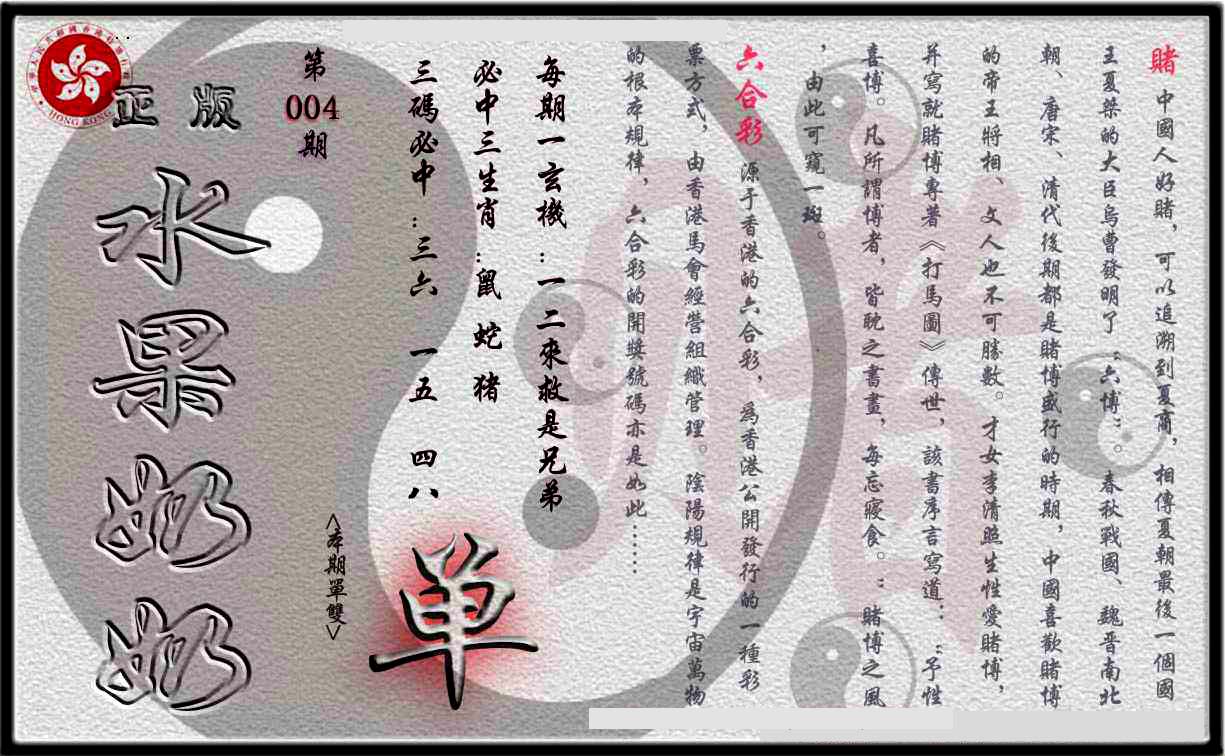 賭 中國人好賭，可以追溯到夏商，相傳夏朝最後一個國
王夏桀的大臣烏曹發明了“六博”。春秋戰國、魏晋南北
朝、唐宋、清代後期都是賭博盛行的時期，中國喜歡賭博
的帝王將相、文人也不可勝數。才女李清照生性愛賭博，
并寫就賭博專著《打馬圖》傳世，該書序言寫道：“予性
喜博。凡所謂博者，皆耽之晝，每忘寢食。”賭博之風
，由此可窺一斑。
六合彩 源于香港的六合彩，爲香港公開發行的一種彩
票方式，由香港馬會經營組織管理。陰陽規律是宇宙萬物
的根本規律，六合彩的開獎號碼亦是如此……
每期一玄機：一二來救是兄弟
必中三生肖：鼠 蛇 猪
三碼必中：三六 一五 四八
單
第
004
期
<本期單雙>
正版
水果奶奶
HONG KONG